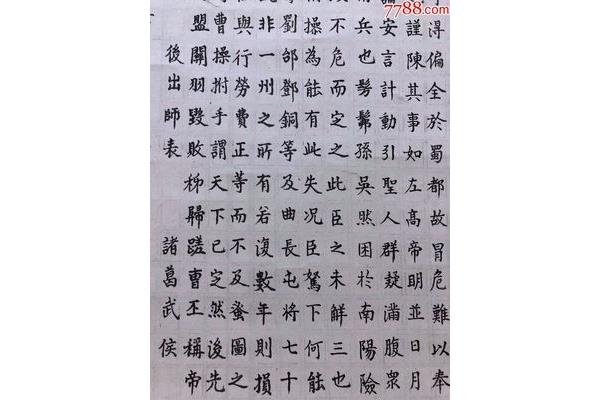 7788.com
得偏全於蜀都故冒危難以奉
謹陳其事如左高帝明並日月
論安言計動引聖人群疑滿腹衆
兵也髣髴孫吳然困於南陽險
不危而定之此臣之未解三也
操為能有此失况臣駑下何能
劉郃鄧銅等及曲長屯將七十
非一州之所有若復數年則損
與行勞費正等而不及蚤圖之
曹操拊手謂天下已定然後先
盟關羽毀敗秭歸蹉曹丕稱帝
後出師表 諸葛武侯